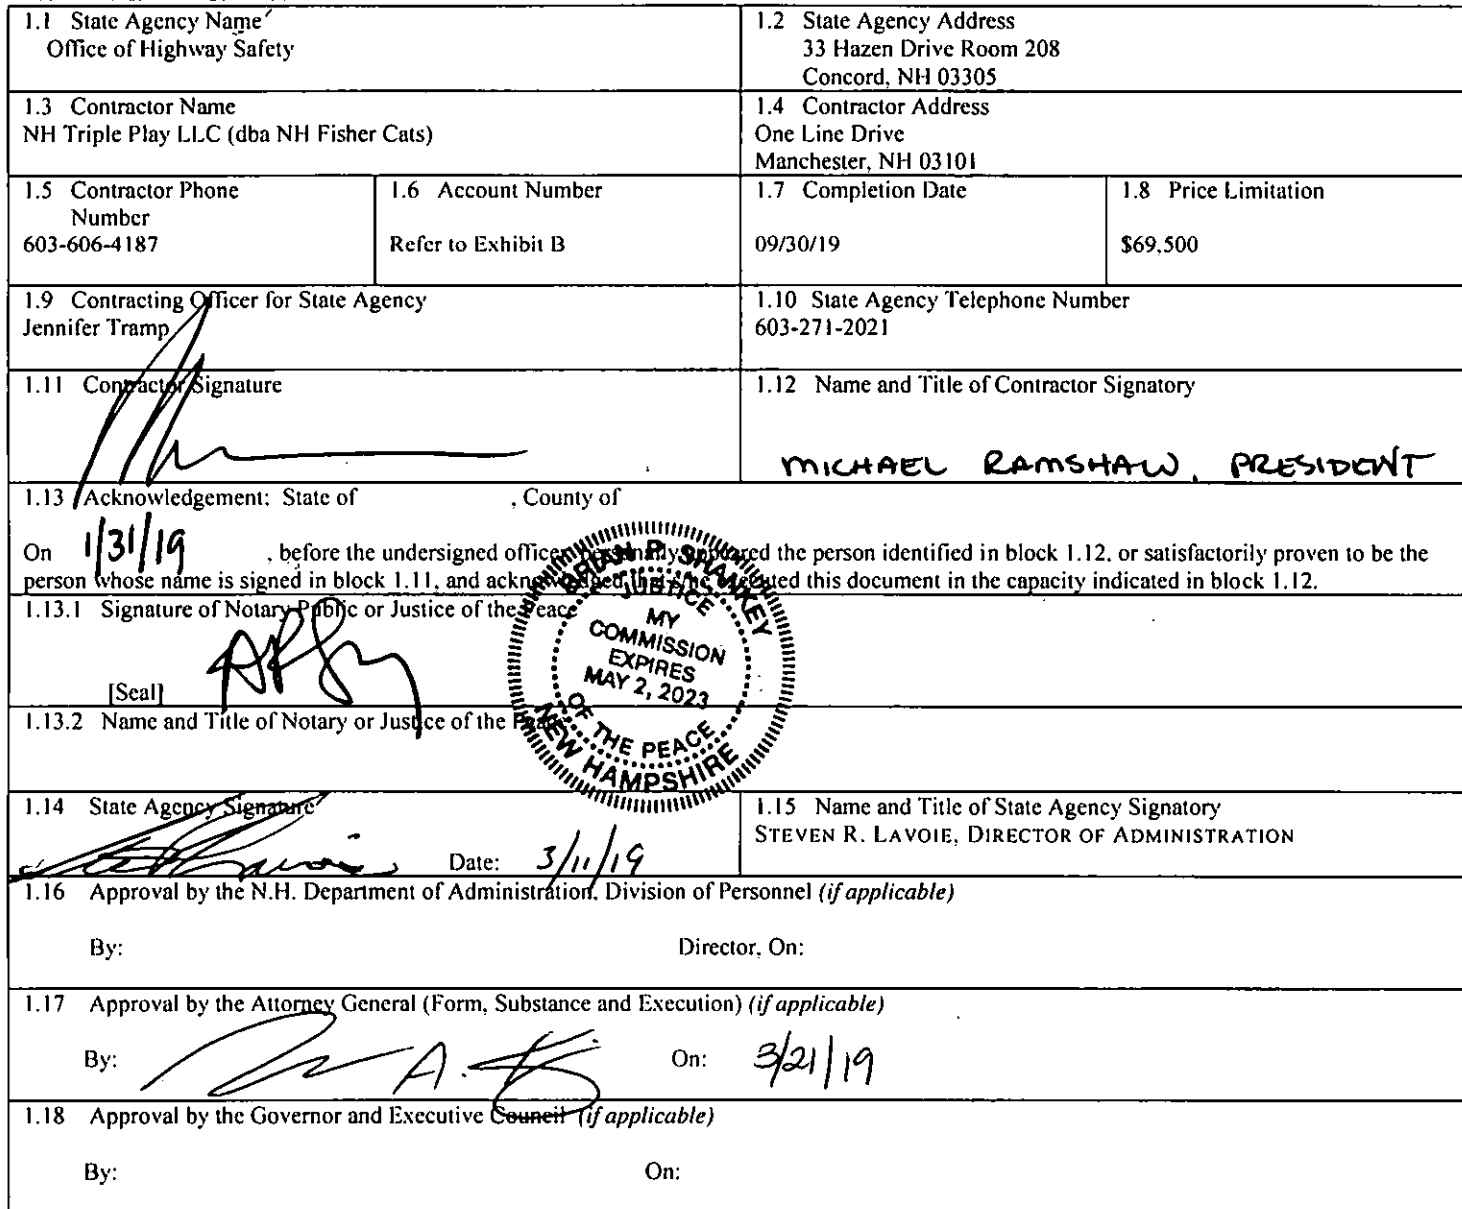 1.1 State Agency Name
Office of Highway Safety
1.2 State Agency Address
33 Hazen Drive Room 208
Concord, NH 03305
1.3 Contractor Name
NH Triple Play LLC (dba NH Fisher Cats)
1.4 Contractor Address
One Line Drive
Manchester, NH 03101
1.5 Contractor Phone
Number
603-606-4187
1.6 Account Number
Refer to Exhibit B
1.7 Completion Date
09/30/19
1.8 Price Limitation
$69,500
1.9 Contracting Officer for State Agency
Jennifer Tramp
1.10 State Agency Telephone Number
603-271-2021
1.11 Contractor Signature
1.12 Name and Title of Contractor Signatory
MICHAEL RAMSHAW, PRESIDENT
1.13 Acknowledgement: State of , County of
On 1/31/19 , before the undersigned officer, personally appeared the person identified in block 1.12, or satisfactorily proven to be the
person whose name is signed in block 1.11, and acknowledged that s/he executed this document in the capacity indicated in block 1.12.
1.13.1 Signature of Notary Public or Justice of the Peace
[Seal]
BRIAN P. SHANKEY
JUSTICE
MY
COMMISSION
EXPIRES
MAY 2, 2023
OF THE PEACE
NEW HAMPSHIRE
1.13.2 Name and Title of Notary or Justice of the Peace
1.14 State Agency Signature
Date: 3/11/19
1.15 Name and Title of State Agency Signatory
STEVEN R. LAVOIE, DIRECTOR OF ADMINISTRATION
1.16 Approval by the N.H. Department of Administration, Division of Personnel (if applicable)
By: Director, On:
1.17 Approval by the Attorney General (Form, Substance and Execution) (if applicable)
By: On: 3/21/19
1.18 Approval by the Governor and Executive Council (if applicable)
By: On: